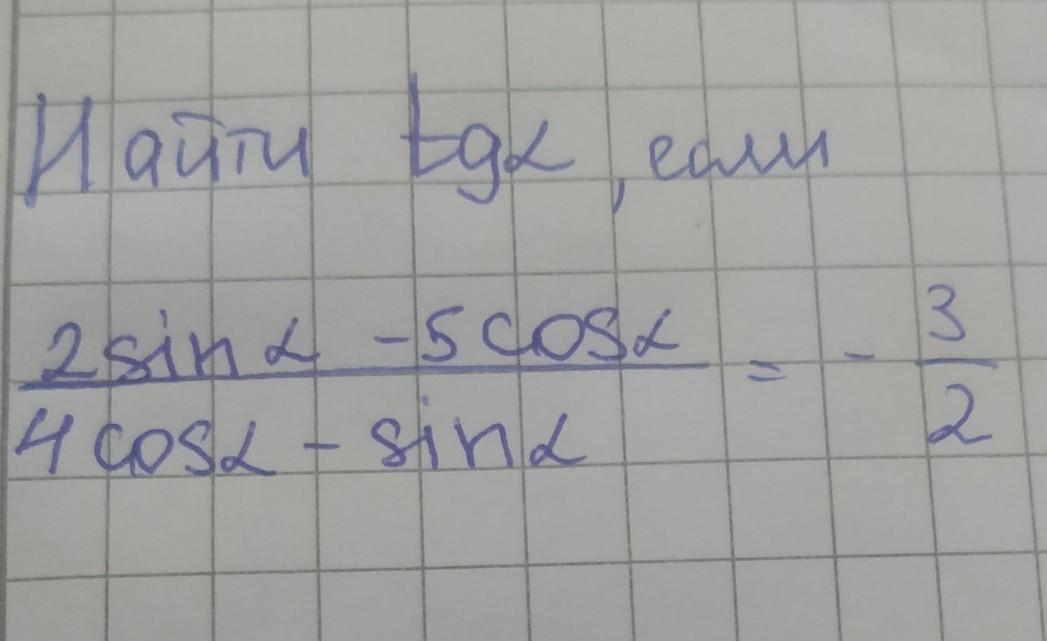 Найти tgα, если
2sinα - 5cosα / 4cosα - sinα = - 3/2